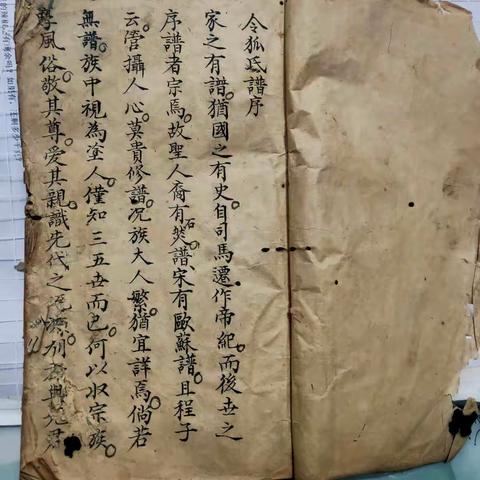 令狐氏譜序
家之有譜猶國之有史自司馬遷作帝紀而後世之
序譜者宗焉故聖人裔有石譜宋有歐蘇譜且程子
云管攝人心莫貴修譜况族大人繁猶宜詳焉倘若
無譜族中視為塗人僅知三五世而已何以收宗族
風俗敬其尊愛其親識先代之